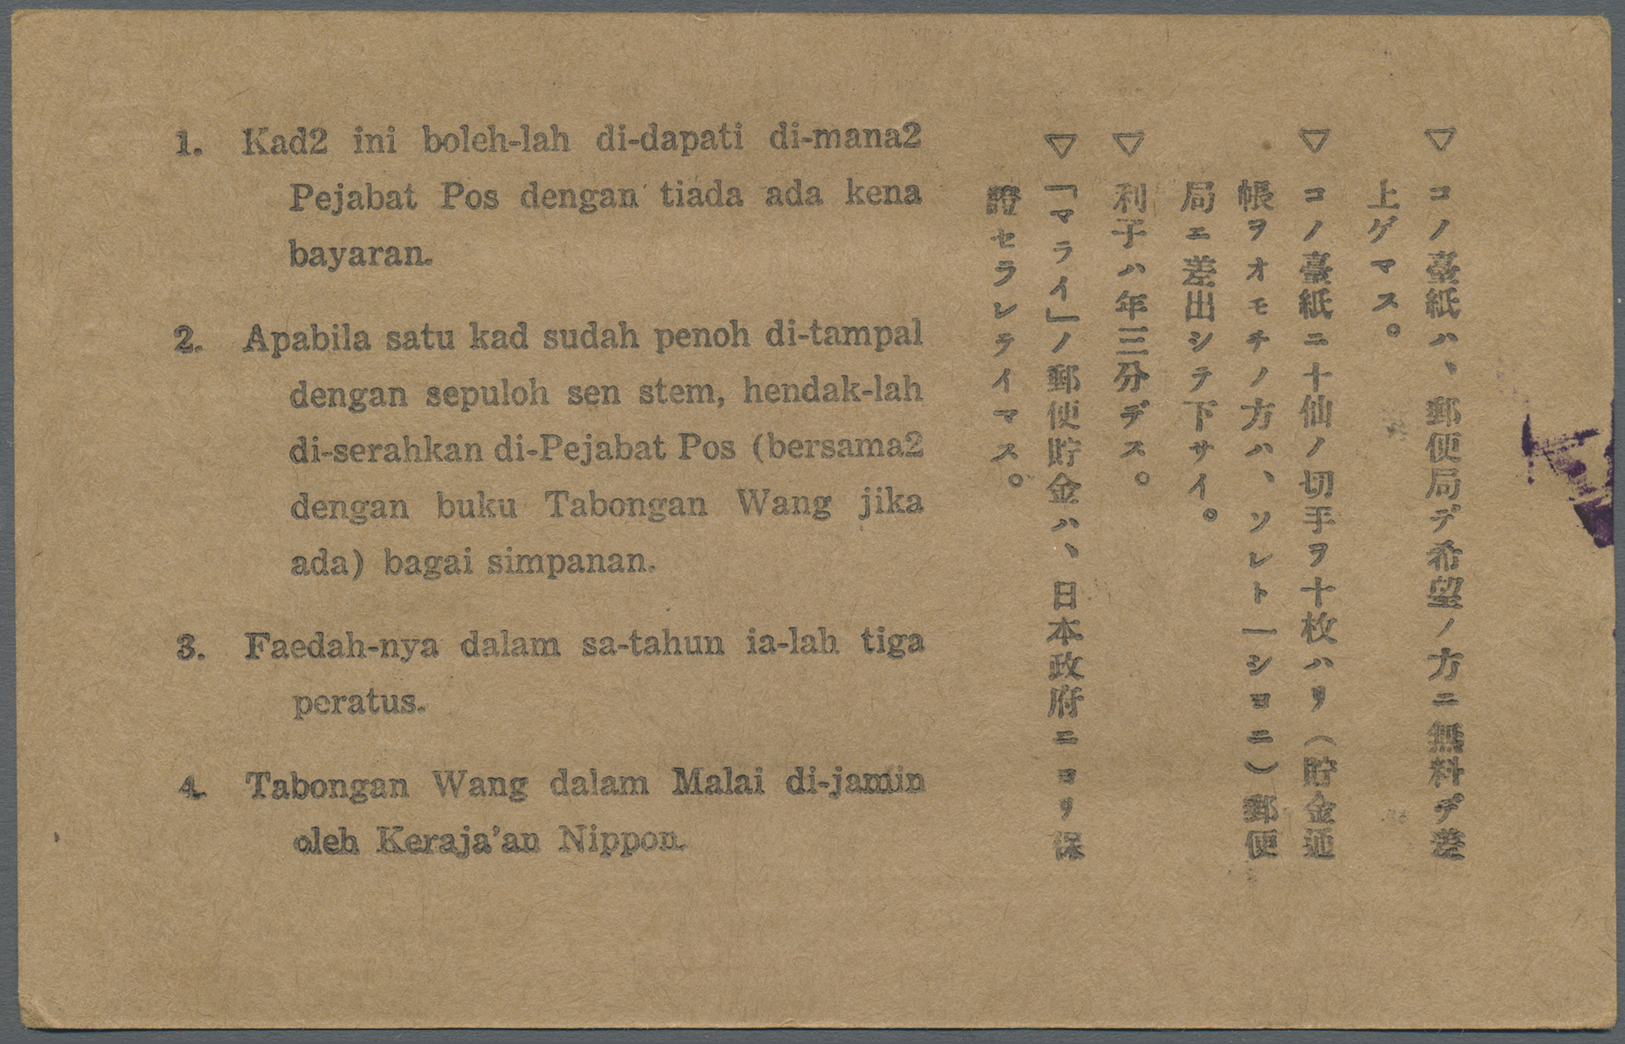 1. Kad2 ini boleh-lah di-dapati di-mana2
Pejabat Pos dengan tiada ada kena
bayaran.
2. Apabila satu kad sudah penoh di-tampal
dengan sepuloh sen stem, hendak-lah
di-serahkan di-Pejabat Pos (bersama2
dengan buku Tabongan Wang jika
ada) bagai simpanan.
3. Faedah-nya dalam sa-tahun ia-lah tiga
peratus.
4. Tabongan Wang dalam Malai di-jamin
oleh Keraja'an Nippon.
▽ コノ臺紙ハ、郵便局デ希望ノ方ニ無料デ差
上ゲマス。
▽ コノ臺紙ニ十仙ノ切手ヲ十枚ハリ(貯金通
帳ヲオモチノ方ハ、ソレト一ショニ)郵便
局エ差出シテ下サイ。
▽ 利子ハ年三分デス。
▽ 「マライ」ノ郵便貯金ハ、日本政府ニヨリ保
證セラレテイマス。